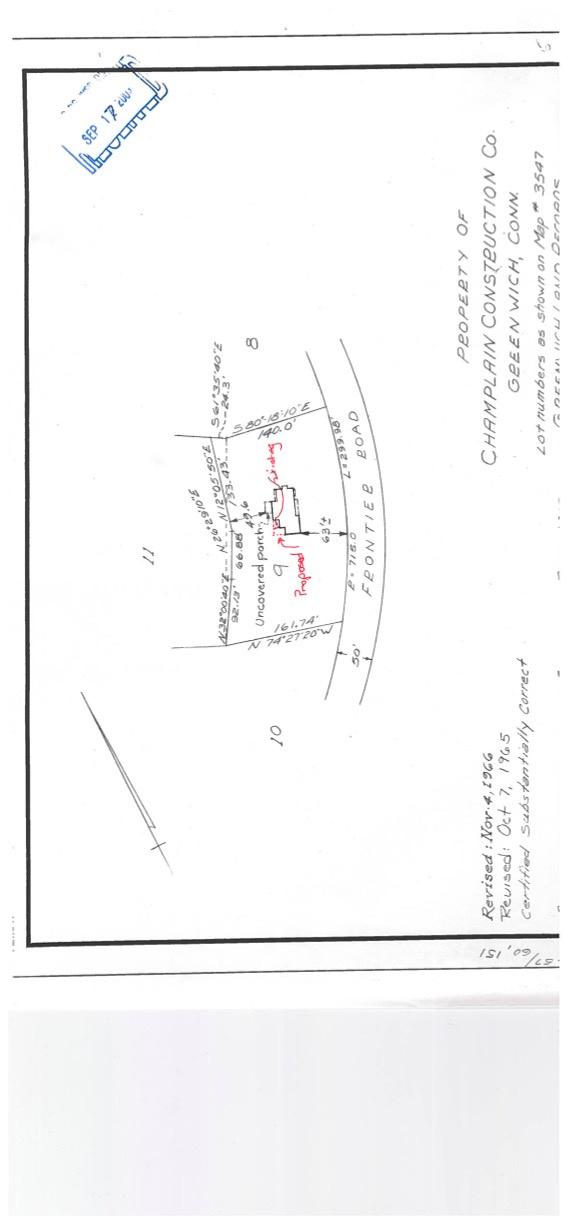 SEP 17
11
8
S 61°35'40"E
24.3'
S 80°18'10"E
140.0'
N 26°29'10"E
N 12°05'50"E
133.43'
N 32°00'40"E
92.13'
66.88
49.6
Uncovered porch
Existing
9
Proposed
63'±
161.74'
N 74°27'20"W
R = 718.0
L = 299.98'
FRONTIER ROAD
50'
10
PROPERTY OF
CHAMPLAIN CONSTRUCTION Co.
GREENWICH, CONN.
Lot numbers as shown on Map # 3547
GREENWICH LAND RECORDS
Revised: Nov. 4, 1966
Revised: Oct 7, 1965
Certified Substantially Correct
60,151